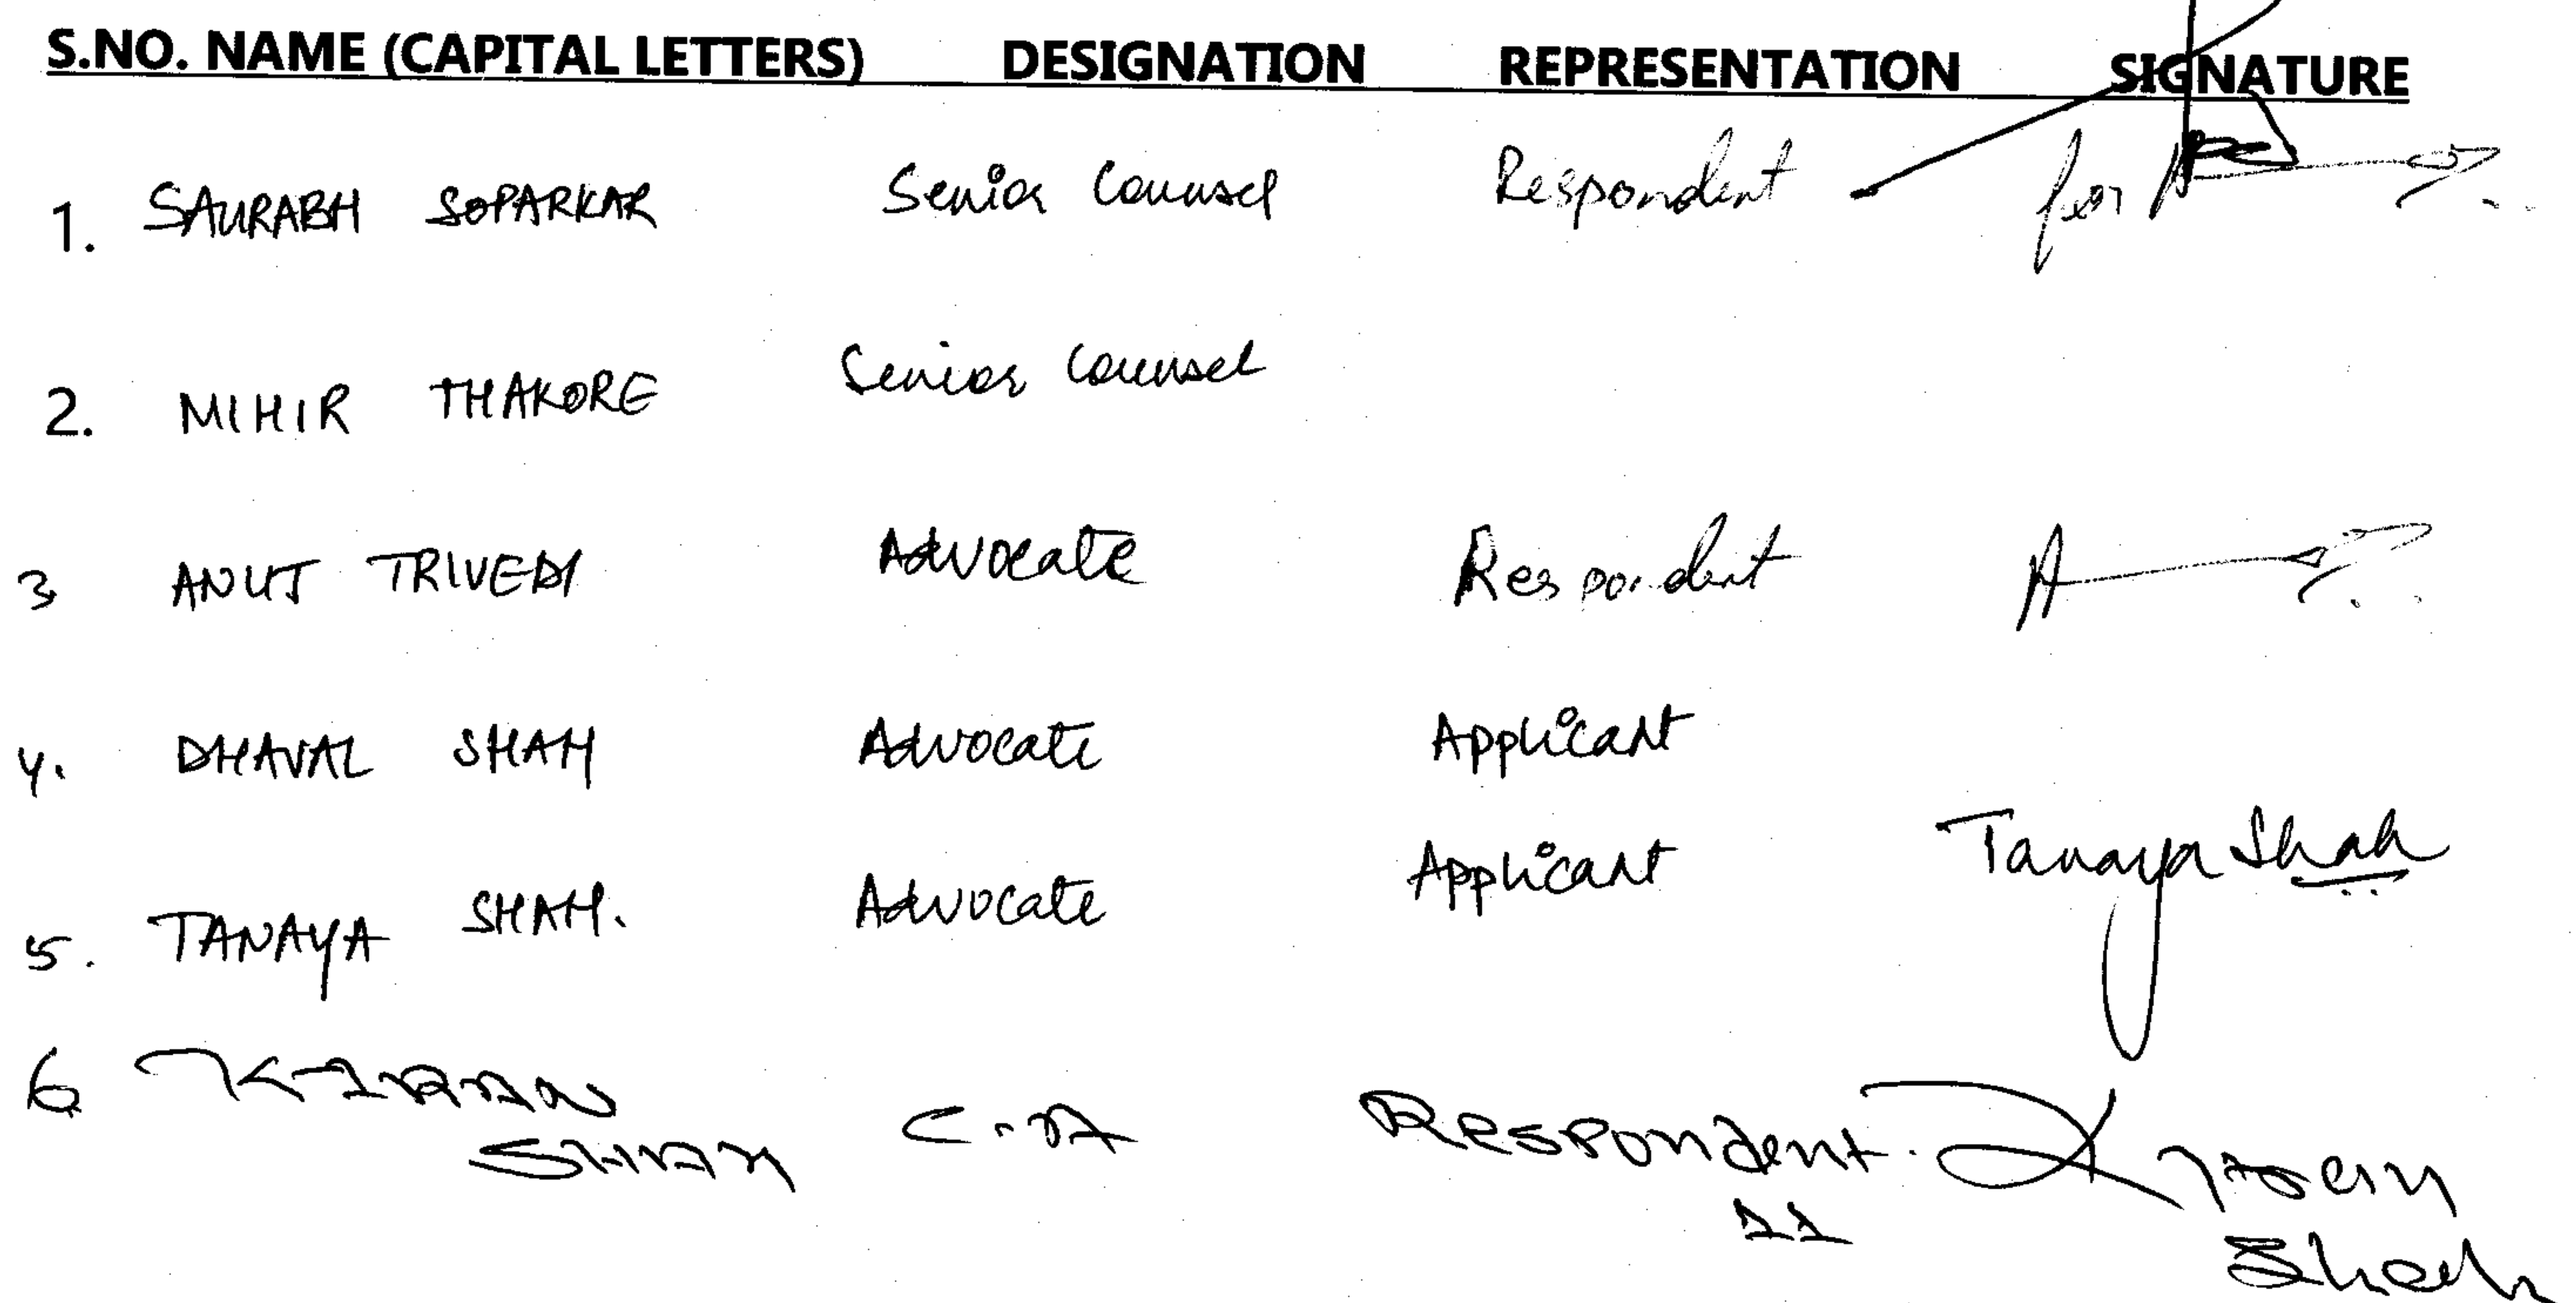 S.NO. NAME (CAPITAL LETTERS) DESIGNATION REPRESENTATION SIGNATURE
1. SAURABH SOPARKAR Senior Counsel Respondent for
2. MIHIR THAKORE Senior Counsel
3 ANUJ TRIVEDI Advocate Respondent
4. DHAVAL SHAH Advocate Applicant
5. TANAYA SHAH. Advocate Applicant Tanaya Shah
6 KIRAN SHAH C.A Respondent. 11 Kiran Shah